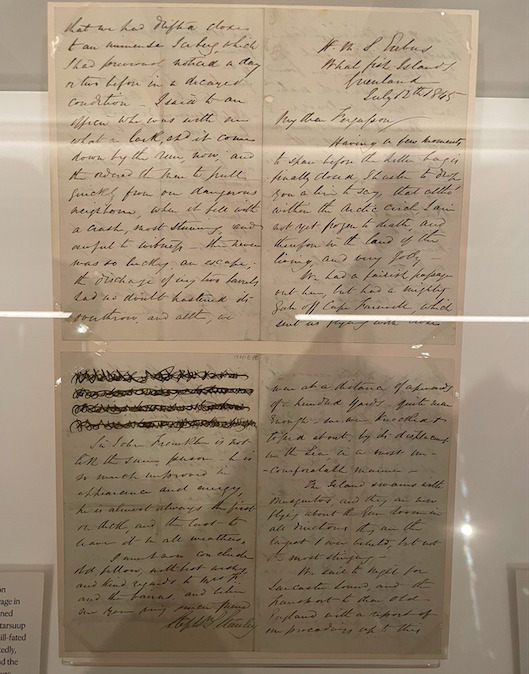 H. M. S. Erebus
Whale fish Islands
Greenland
July 12th 1845
My dear Ferguson
Having a few moments
to spare before the letter bag is
finally closed, I hasten to drop
you a line to say, that altho'
within the Arctic circle I am
not yet frozen to death, and
therefore in the land of the
living and very jolly. -
We had a fairish passage
out here, but had a mighty
Gale off Cape Farewell, which
sent us flying with
that we had drifted closer
to an immense Iceberg which
I had previously noticed a day
or two before in a decayed
condition - I said to an
officer who was with me
what a lark, if it comes
down by the run now, and
ordered the men to pull
quickly from our dangerous
neighbour, when it fell with
a crash, most stunning and
awful to witness - there never
was so lucky an escape;
the discharge of my two barrels
had no doubt hastened its
overthrow, and altho, we
were at a distance of upwards
of a hundred yards quite near
enough - we were knocked &
tossed about, by its displacing
the Sea in a most un-
-comfortable manner -
The Island swarms with
Musquitos, and they are now
flying about the Gun Room in
all directions they are the
largest I ever beheld, but not
the most stinging.
We sail to night for
Lancaster Sound, and the
transport to dear Old
England with a report of
our proceedings up to this
Sir John Franklin is not
like the same person - he is
so much improved in
appearance and energy,
he is almost always the first
on deck, and the last to
leave it in all weathers,
I must now conclude
Old fellow, with best wishes
and kind regards to Mrs F.
and the bairns, and believe
me Your very sincere friend
Steph. S. Stanley
on
age in
ned
tarsuup
ill-fated
tedly,
d the